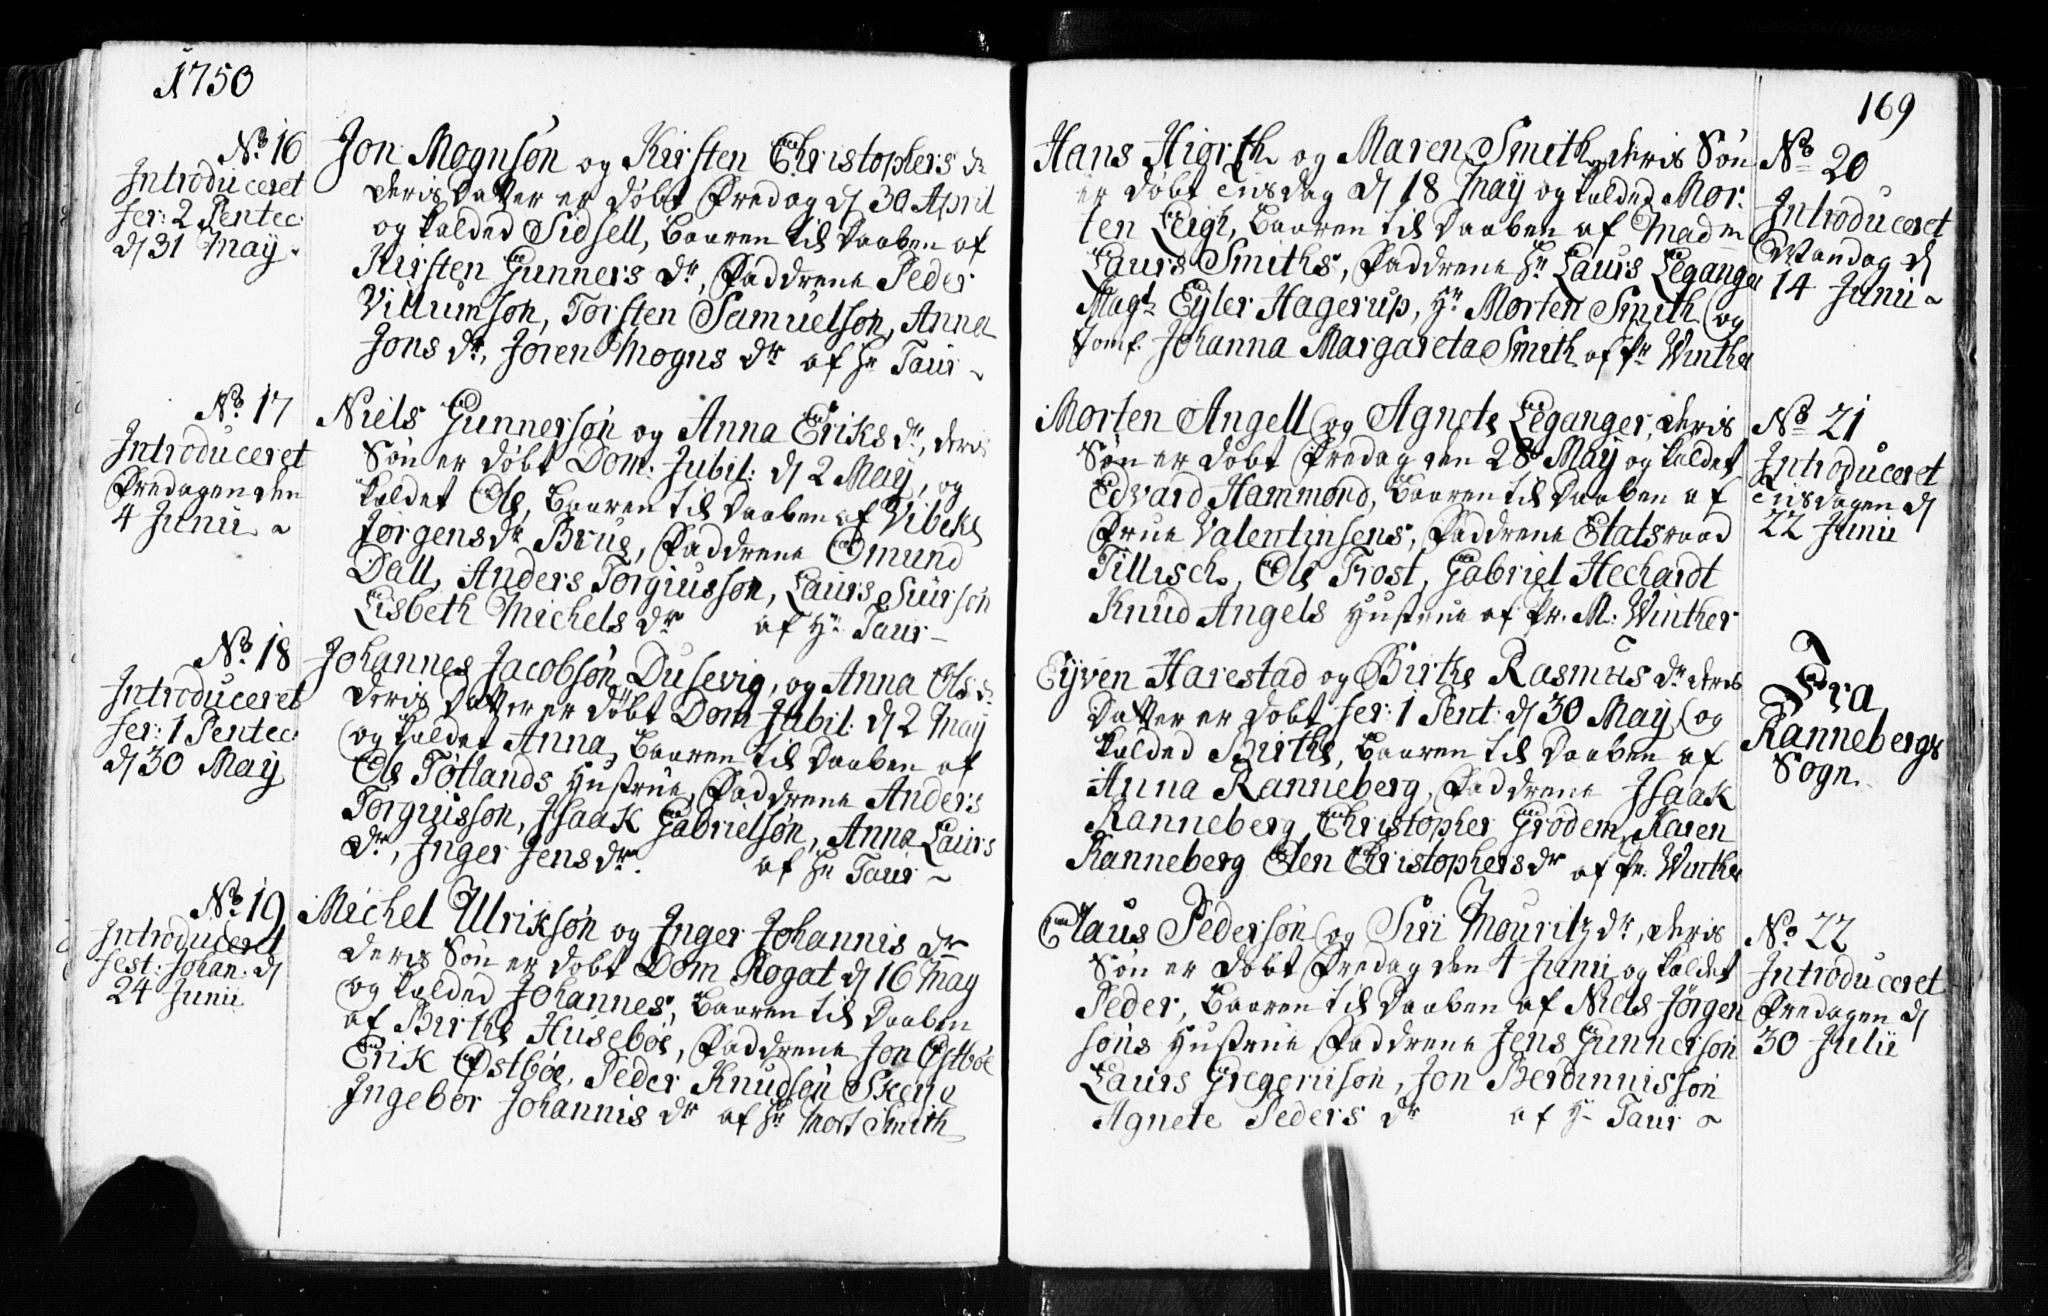 1750
No. 16
Introduceret
fer: 2 Pentec:
d 31 May.
Jon Mognsøn og Kirsten Christophers dr
deris Datter er døbt Fredag d 30 April
og kalded Sidsell, baaren til Daaben af
Kirsten Gunners dr, Faddrene Peder
Villumsøn, Torsten Samuelsøn, Anna
Jons dr, Joren Mogns dr af Hr Taur ~
No. 17
Introduceret
Fredagen den
4 Junii ~
Niels Gunnersøn og Anna Eriks dr, deris
Søn er døbt Dom: Jubil: d 2 May, og
kaldet Ole, baaren til Daaben af Vibeke
Jørgens dr Brue, Faddrene Omund
Dall, Anders Torgiusson, Laurs Siurson
Lisbeth Michels dr af Hr Taur –
No. 18
Introduceret
fer: 1 Pentec:
d 30 May
Johannes Jacobsøn Dusevig, og Anna Ols dr
deris Datter er døbt Dom Jubil: d 2 May
og kaldet Anna, baaren til Daaben af
Ole Tøtlands Hustrue, Faddrene Anders
Torguisson, Isaak Gabrielsøn, Anna Laurs
dr, Inger Jens dr. af Hr Taur ~
No. 19
Introduceret
fest: Johan: d
24 Junii
Michel Ulriksøn og Inger Johannis dr
deris Søn er døbt Dom Rogat d 16 May
og kalded Johannes, baaren til Daaben
af Birthe Husebøe, Faddrene Jon Østbøe
Erik Østbøe, Peder Knudsøn Skeie
Ingebor Johannis dr af Hr Mort Smith
169
Hans Higrth og Maren Smith deris Søn
er døbt Tiisdag d 18 May og kalded Mor:
ten Leigh, baaren til Daaben af Madm
Laurs Smiths, Faddrene Hr Laurs Leganger
Magr Eyler Hagerup, Hr Morten Smith og
Jomf. Johanna Margareta Smith af Pr Winther
No 20
Introduceret
Mandag d
14 Junii ~
Morten Angell og Agnete Leganger, deris
Søn er døbt Fredag den 28 May og kaldet
Edvard Hammond, baaren til Daaben af
Frue Valentinsens, Faddrene Etatsraad
Tillisch, Ole Frost, Gabriel Hechardt
Knud Angels Hustrue af Pr. M: Winther
No 21
Introduceret
Tiisdagen d
22 Junii
Eyven Harestad og Birthe Rasmus dr deris
Datter er døbt fer: 1 Pent: d 30 May og
kalded Birthe, baaren til Daaben af
Anna Ranneberg, Faddrene Isaak
Ranneberg, Christopher Grødem, Karen
Ranneberg Elen Christophers dr af Pr. Winther
Fra
Rannebergs
Sogn.
Claus Pedersøn og Siri Mouritz dr, deris
Søn er døbt Fredag den 4 Junii og kaldet
Peder, baaren til Daaben af Niels Jørgen
søns Hustrue Faddrene Jens Gunnerson
Laurs Gregoriison, Jon Berdinnisson
Agnete Peders dr af Hr Taur ~
No 22
Introduceret
Fredagen d
30 Julii